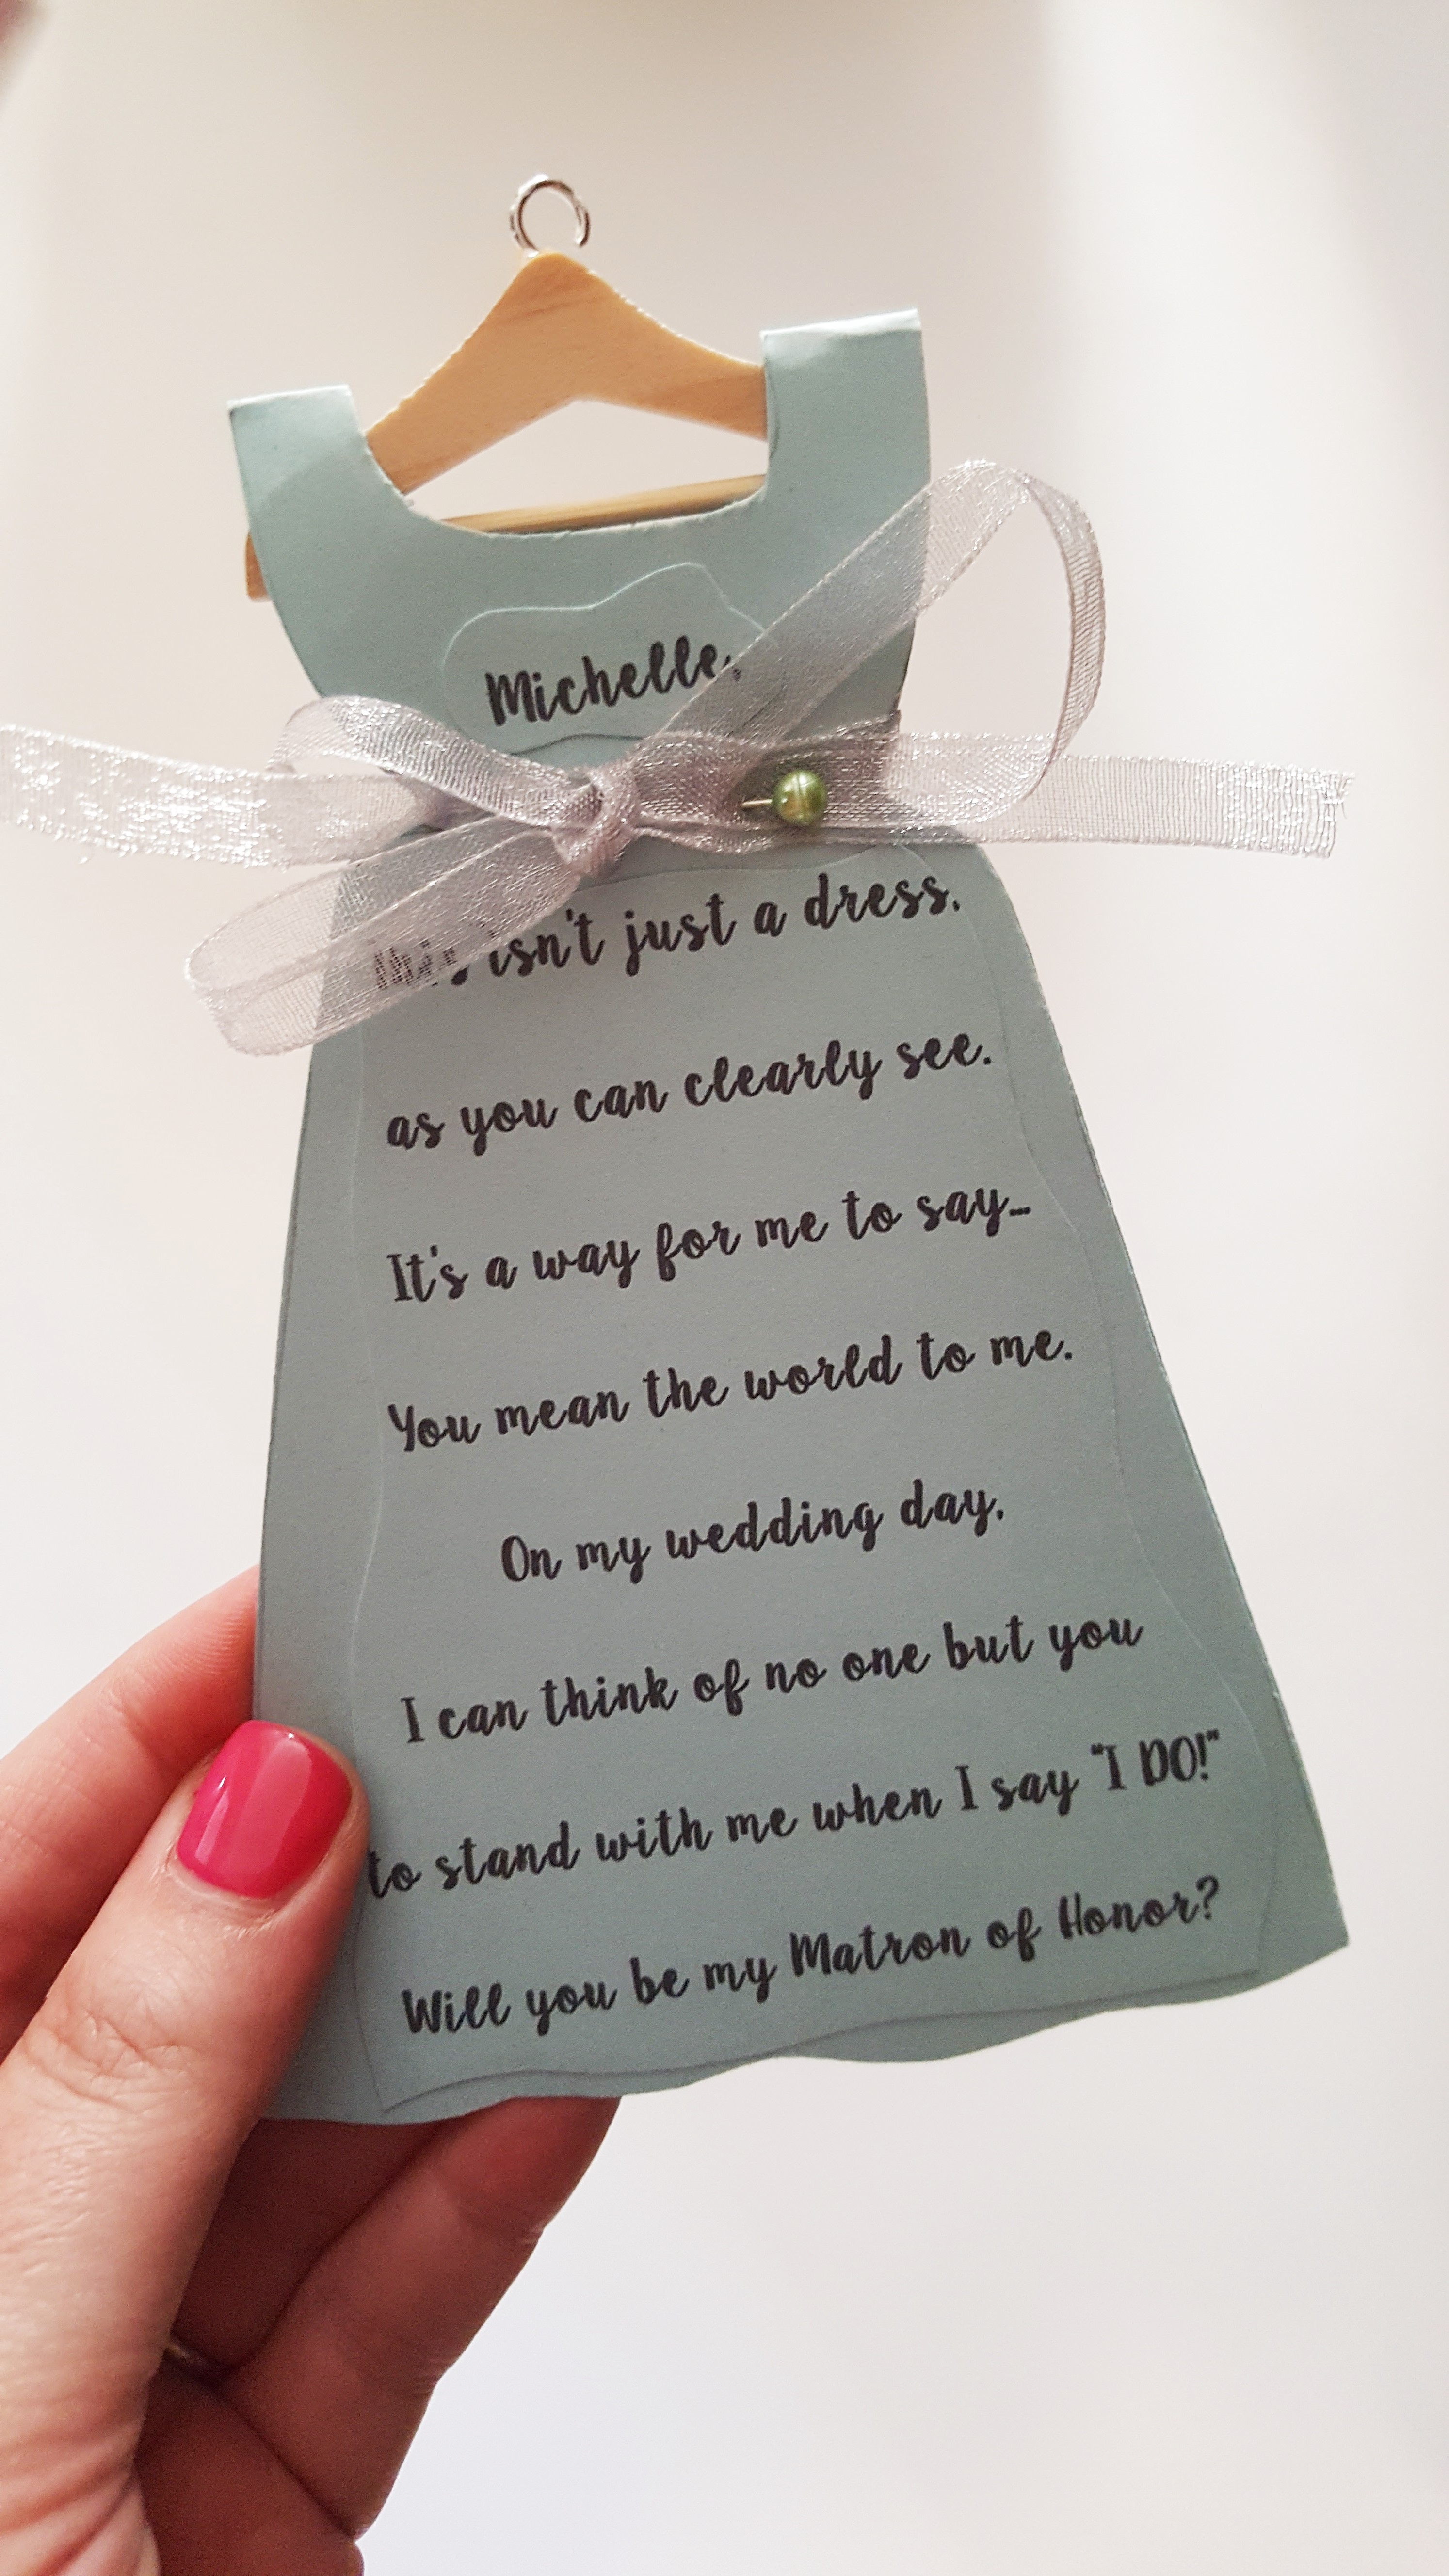 Michelle,
This isn't just a dress,
as you can clearly see.
It's a way for me to say...
You mean the world to me.
On my wedding day,
I can think of no one but you
to stand with me when I say "I DO!"
Will you be my Matron of Honor?